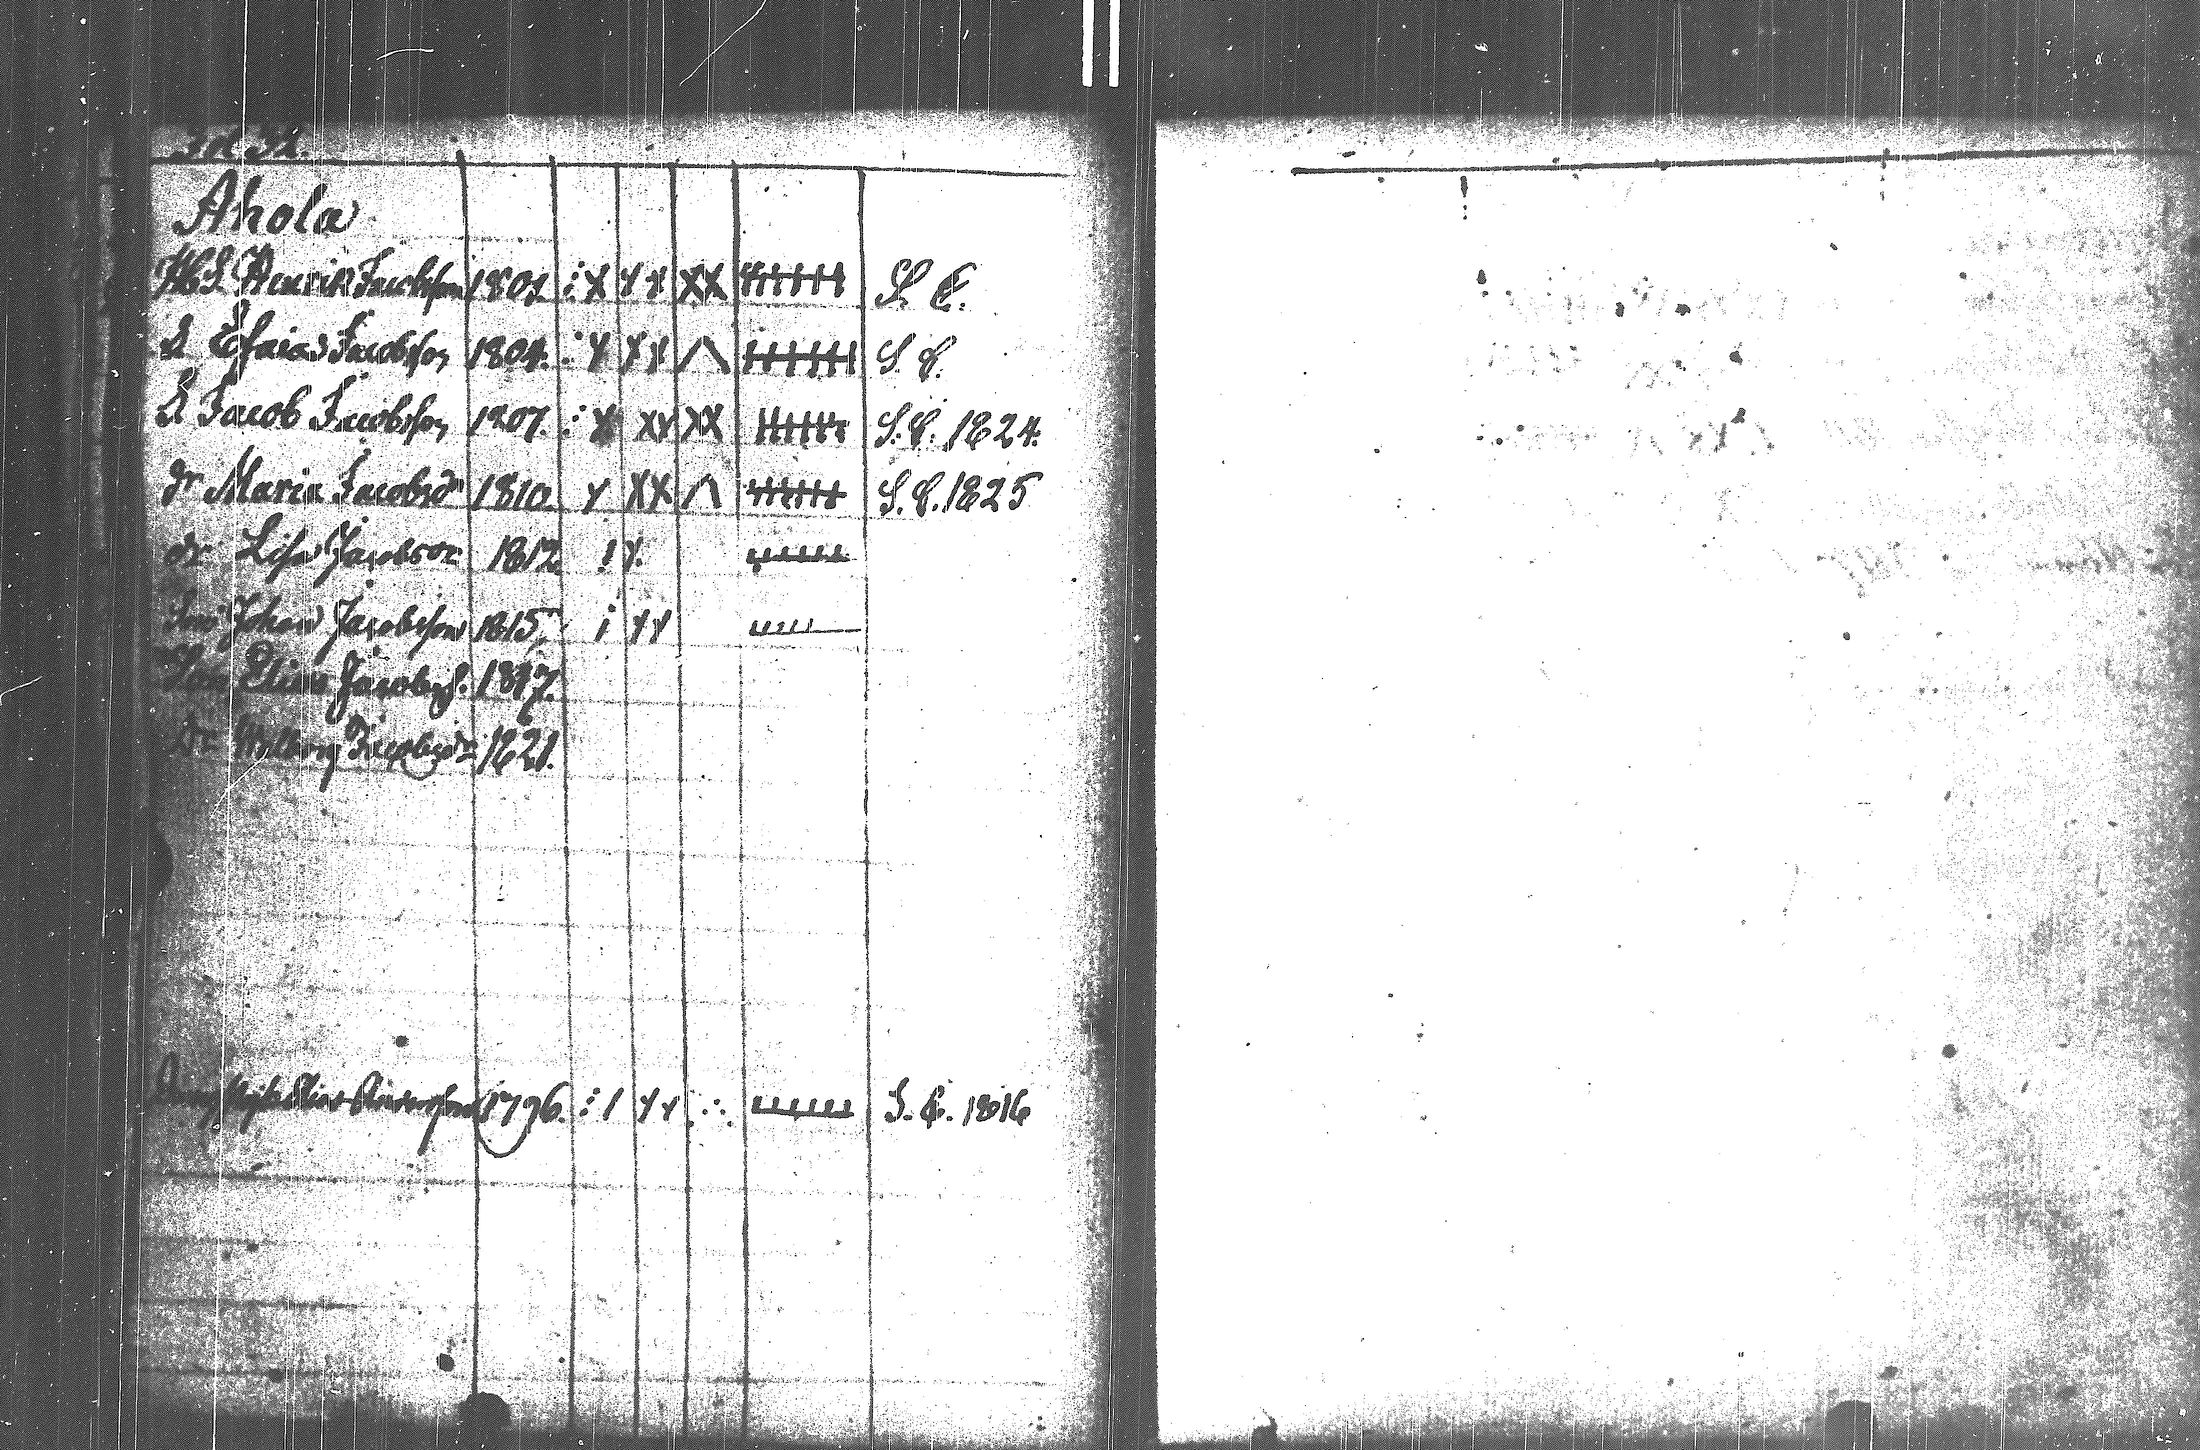 Ahola
Henrik Jacobsson 1801. S. C.
Esaias Jacobsson 1804. S. C.
Jacob Jacobsson 1807. S. C. 1824.
dr Maria Jacobsdr 1810. S. C. 1825
dr Lisa Jacobsdr 1812.
Son Johan Jacobsson 1815.
Son Elias Jacobss. 1817.
Dr Walborg Jacobsdr 1821.
Elias 1796. S. C. 1816